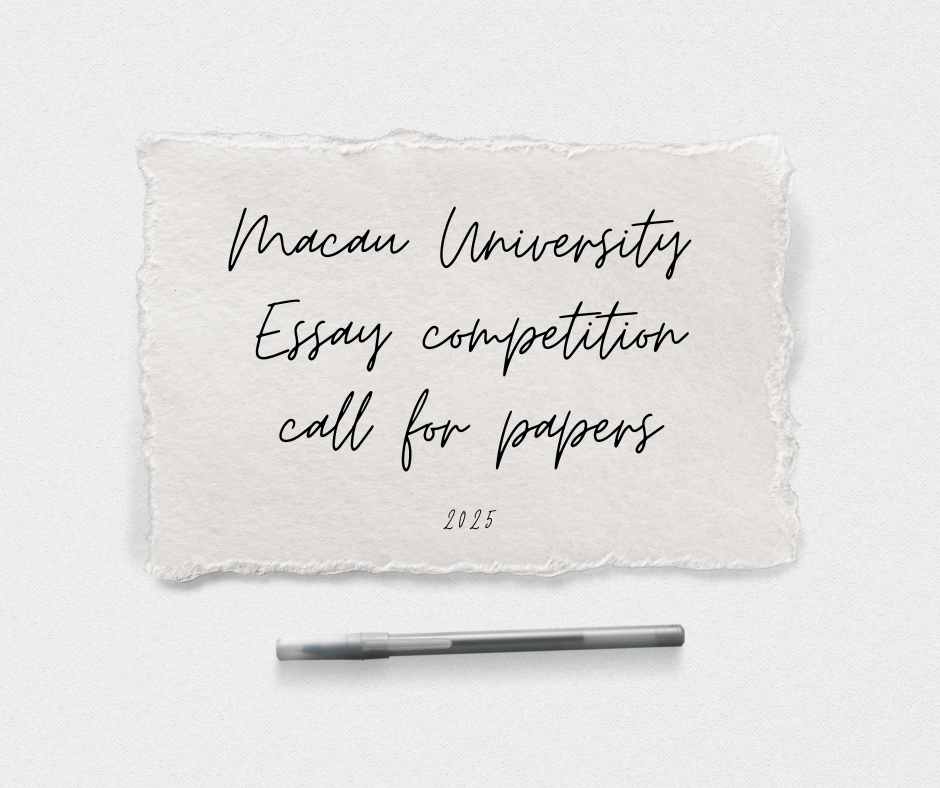 Macau University
Essay competition
call for papers
2025